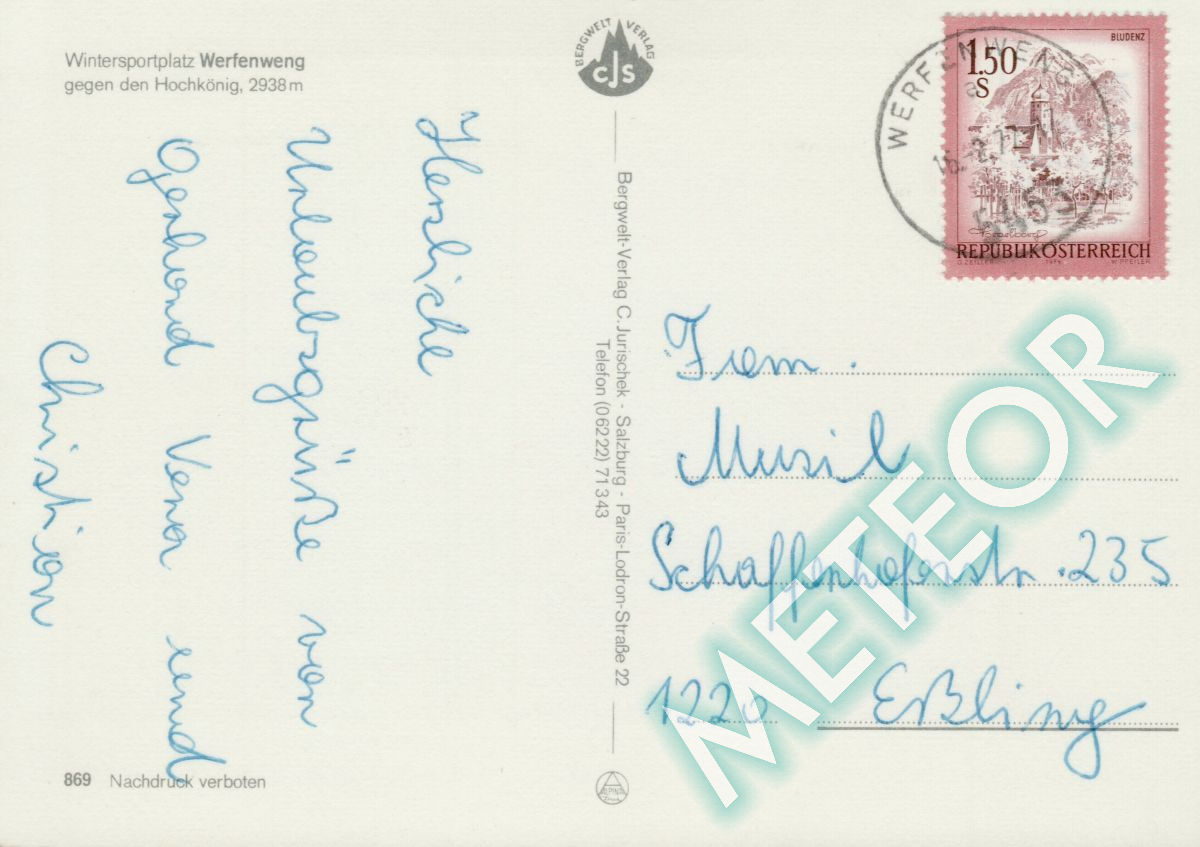 Wintersportplatz Werfenweng
gegen den Hochkönig, 2938 m
BERGWELT VERLAG
CJS
WERFENWENG
1.50
S
BLUDENZ
REPUBLIK ÖSTERREICH
Herzliche
Urlaubsgrüße von
Vera und
Christian
Bergwelt-Verlag C. Jurischek - Salzburg - Paris-Lodron-Straße 22
Telefon (0 62 22) 71 3 43
Musil
Schafflerhoferstr. 235
1220 Eßling
METEOR
869 Nachdruck verboten